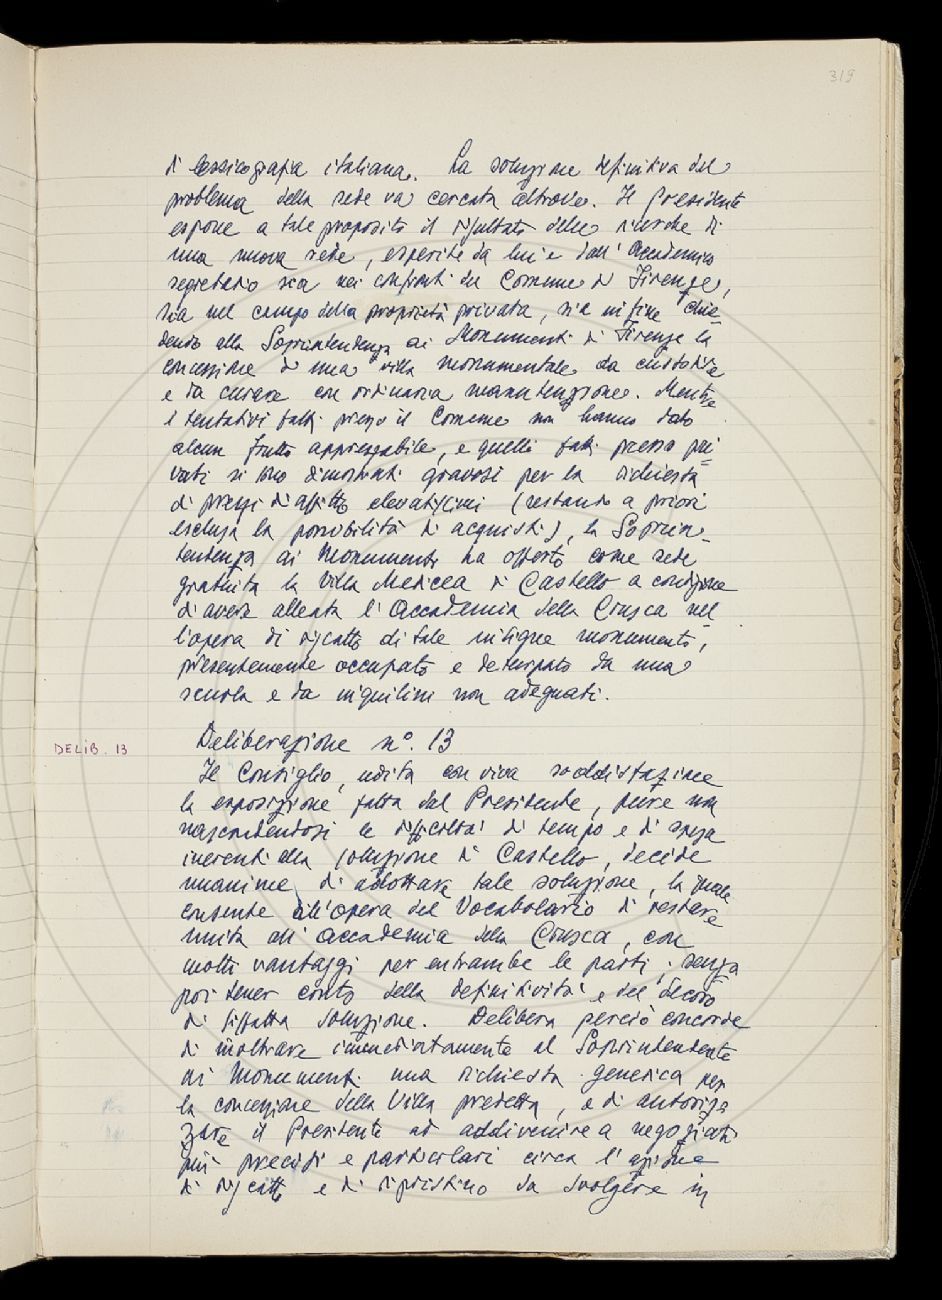 319
di lessicografia italiana. La soluzione definitiva del
problema della sede va cercata altrove. Il Presidente
espone a tale proposito il risultato delle ricerche di
una nuova sede, esperite da lui e dall'Accademico
segretario sia nei confronti del Comune di Firenze,
sia nel campo della proprietà privata, sia infine chie-
dendo alla Soprintendenza ai Monumenti di Firenze la
concessione di una villa monumentale da custodire
e da curare con ordinaria manutenzione. Mentre
i tentativi fatti presso il Comune non hanno dato
alcun frutto apprezzabile, e quelli fatti presso pri-
vati si sono dimostrati gravosi per la richiesta
di prezzi d'affitto elevatissimi (restando a priori
esclusa la possibilità di acquisti), la Soprin-
tendenza ai Monumenti ha offerto come sede
gratuita la Villa Medicea di Castello a condizione
di avere alleata l'Accademia della Crusca nel-
l'opera di riscatto di tale insigne monumento,
presentemente occupato e deturpato da una
scuola e da inquilini non adeguati.
DELIB. 13
Deliberazione n°. 13
Il Consiglio, udita con viva soddisfazione
la esposizione fatta dal Presidente, pure non
nascondendosi le difficoltà di tempo e di spesa
inerenti alla soluzione di Castello, decide
unanime di adottare tale soluzione, la quale
consente all'opera del Vocabolario di restare
unita all'Accademia della Crusca, con
molti vantaggi per entrambe le parti, senza
poi tener conto della definitività e del decoro
di siffatta soluzione. Delibera perciò concorde
di inoltrare immediatamente al Soprintendente
ai Monumenti una richiesta generica per
la concessione della Villa predetta, e di autoriz
zare il Presidente ad addivenire a negoziati
più precisi e particolari circa l'azione
di riscatto e di ripristino da svolgere in